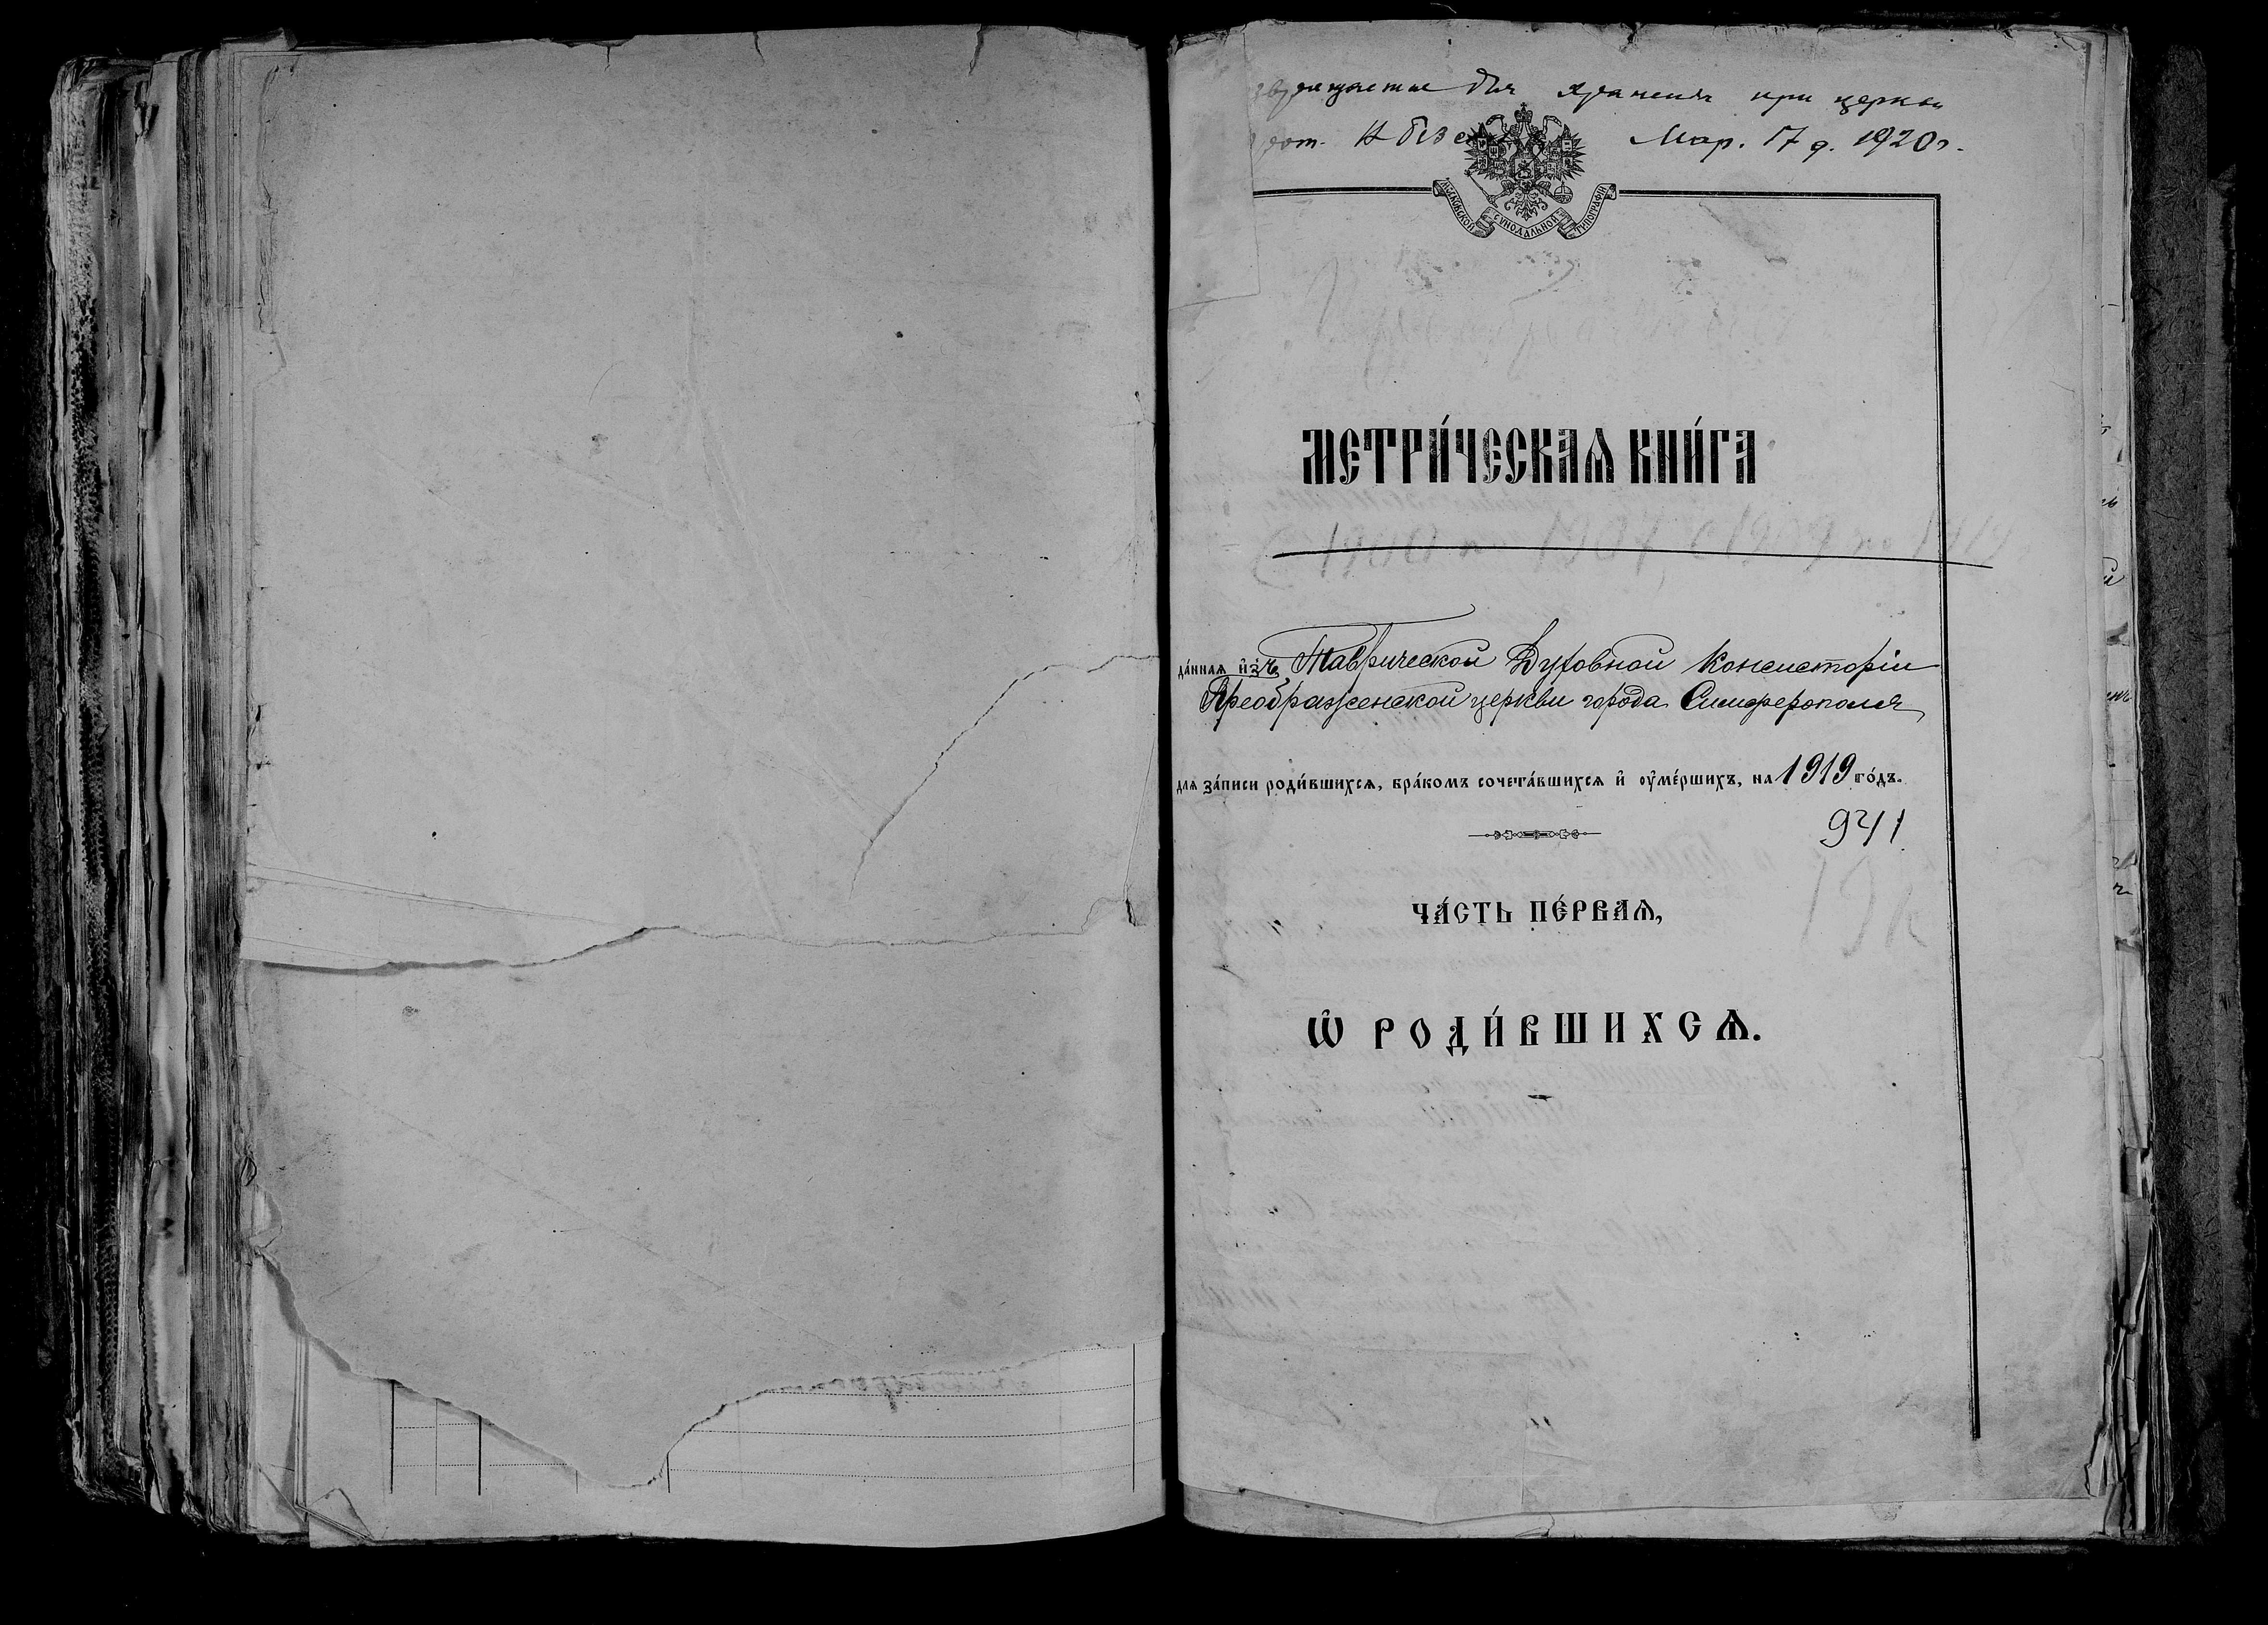 для храненія при церкви
Мар. 17 д. 1920 г.
МОСКОВСКОЙ СѴНОДАЛЬНОЙ ТИПОГРАФІИ
МЕТРИ́ЧЕСКАѦ КНИ́ГА
С 1900 по 1907, с 1909 по 1919
да́нная и҆зъ Таврической Духовной Консисторіи
Преображенской церкви города Симферополя
для за́писи роди́вшихсѧ, бра́комъ сочета́вшихсѧ и҆ оу҆ме́ршихъ, на 1919 го́дъ.
941
ЧА́СТЬ ПЕ́РВАѦ,
Ѽ РОДИ́ВШИХСѦ.